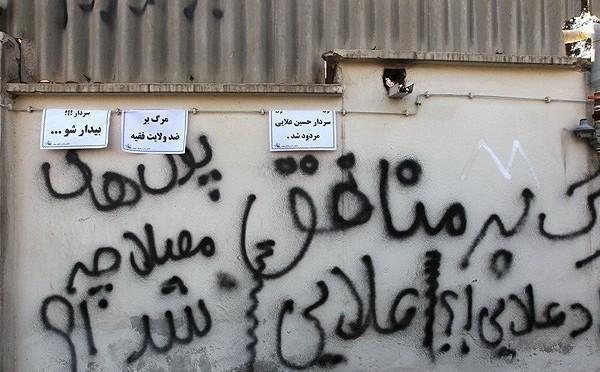 سردار حسین علایی
مردود شد .
مرگ بر
ضد ولایت فقیه
سردار!!!
بیدار شو ...
رگ بر منافق
د علایی!؟
علایی
پول های
مصلا چه
شد ؟!